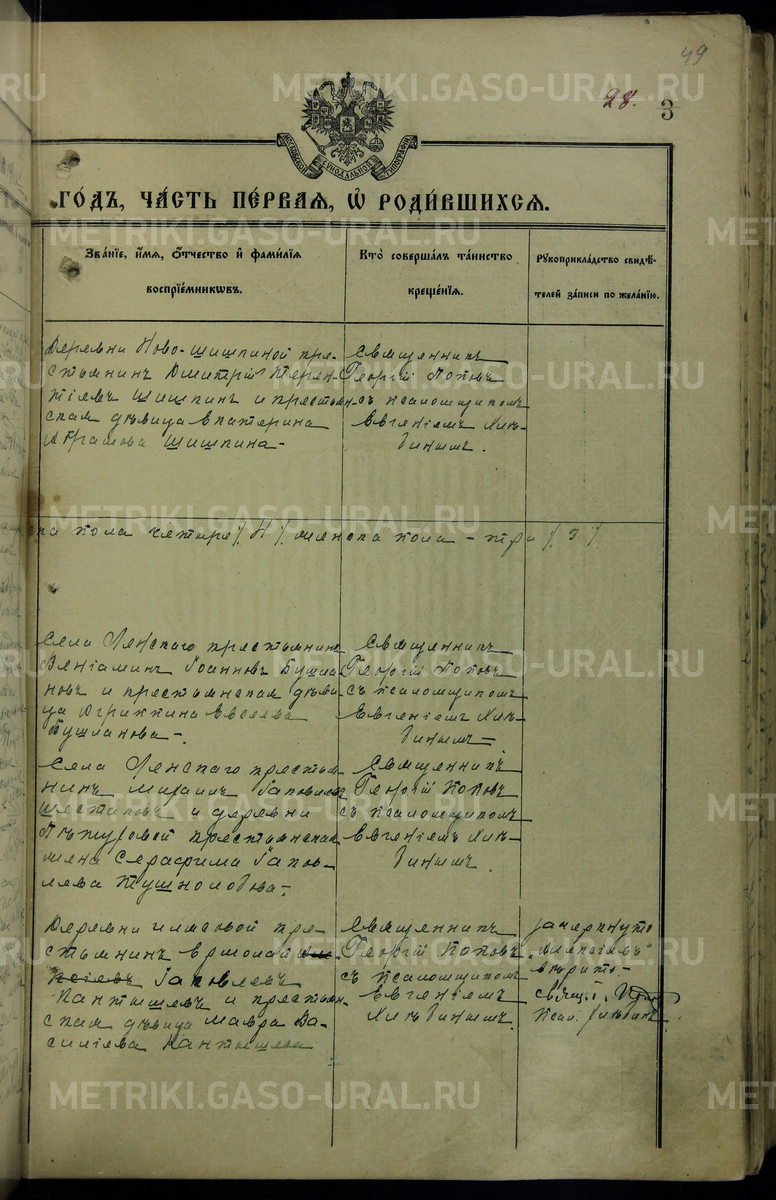 49
28.
3
МОСКОВСКОЙ СѴНОДАЛЬНОЙ ТИПОГРАФІИ
ГОДЪ, ЧА́СТЬ ПЕ́РВАЯ, Ѡ҆ РОДИ́ВШИХСЯ.
Зва́нїе, и҆́мя, ѻ҆́тчество и҆ фами́лїя
воспрїе́мникѡвъ.
Кто̀ соверша́лъ та́инство
креще́нїя.
Рꙋкоприкла́дство свидѣ́-
телей за́писи по жела́нїю.
Деревни Ново-Шишпиной кре-
стьянинъ Димитрій Терен-
тіевъ Шишпинъ и крестьян-
ская дѣвица Екатерина
Абрамова Шишпина -
Священникъ
Георгій Поповъ
съ псаломщикомъ
Евгеніемъ
ка пола четыре /4/ женска пола - три /3/.
Села Ленскаго крестьянинъ
Веніаминъ Іоанновъ Бушла-
новъ и крестьянская дѣви-
ца Агриппина
Бушланова -.
Священникъ
Георгій Поповъ
съ псаломщикомъ
Евгеніемъ
Села Ленскаго крестья-
нинъ Михаилъ Іаковлевъ
Шестаковъ и деревни
крестьянская
жена Серафима Іаков-
лева Тушнолобова -.
Священникъ
Георгій Поповъ
съ псаломщикомъ
Евгеніемъ
Деревни кре-
стьянинъ Ермолай Але-
ксіевъ Іаковлевъ
Кантышевъ и крестьян-
ская дѣвица Мавра Ва-
силіева Кантышева
Священникъ
Георгій Поповъ
съ псаломщикомъ
Евгеніемъ
зачеркнуто
„Алексіевъ"
вѣрно -
METRIKI.GASO-URAL.RU